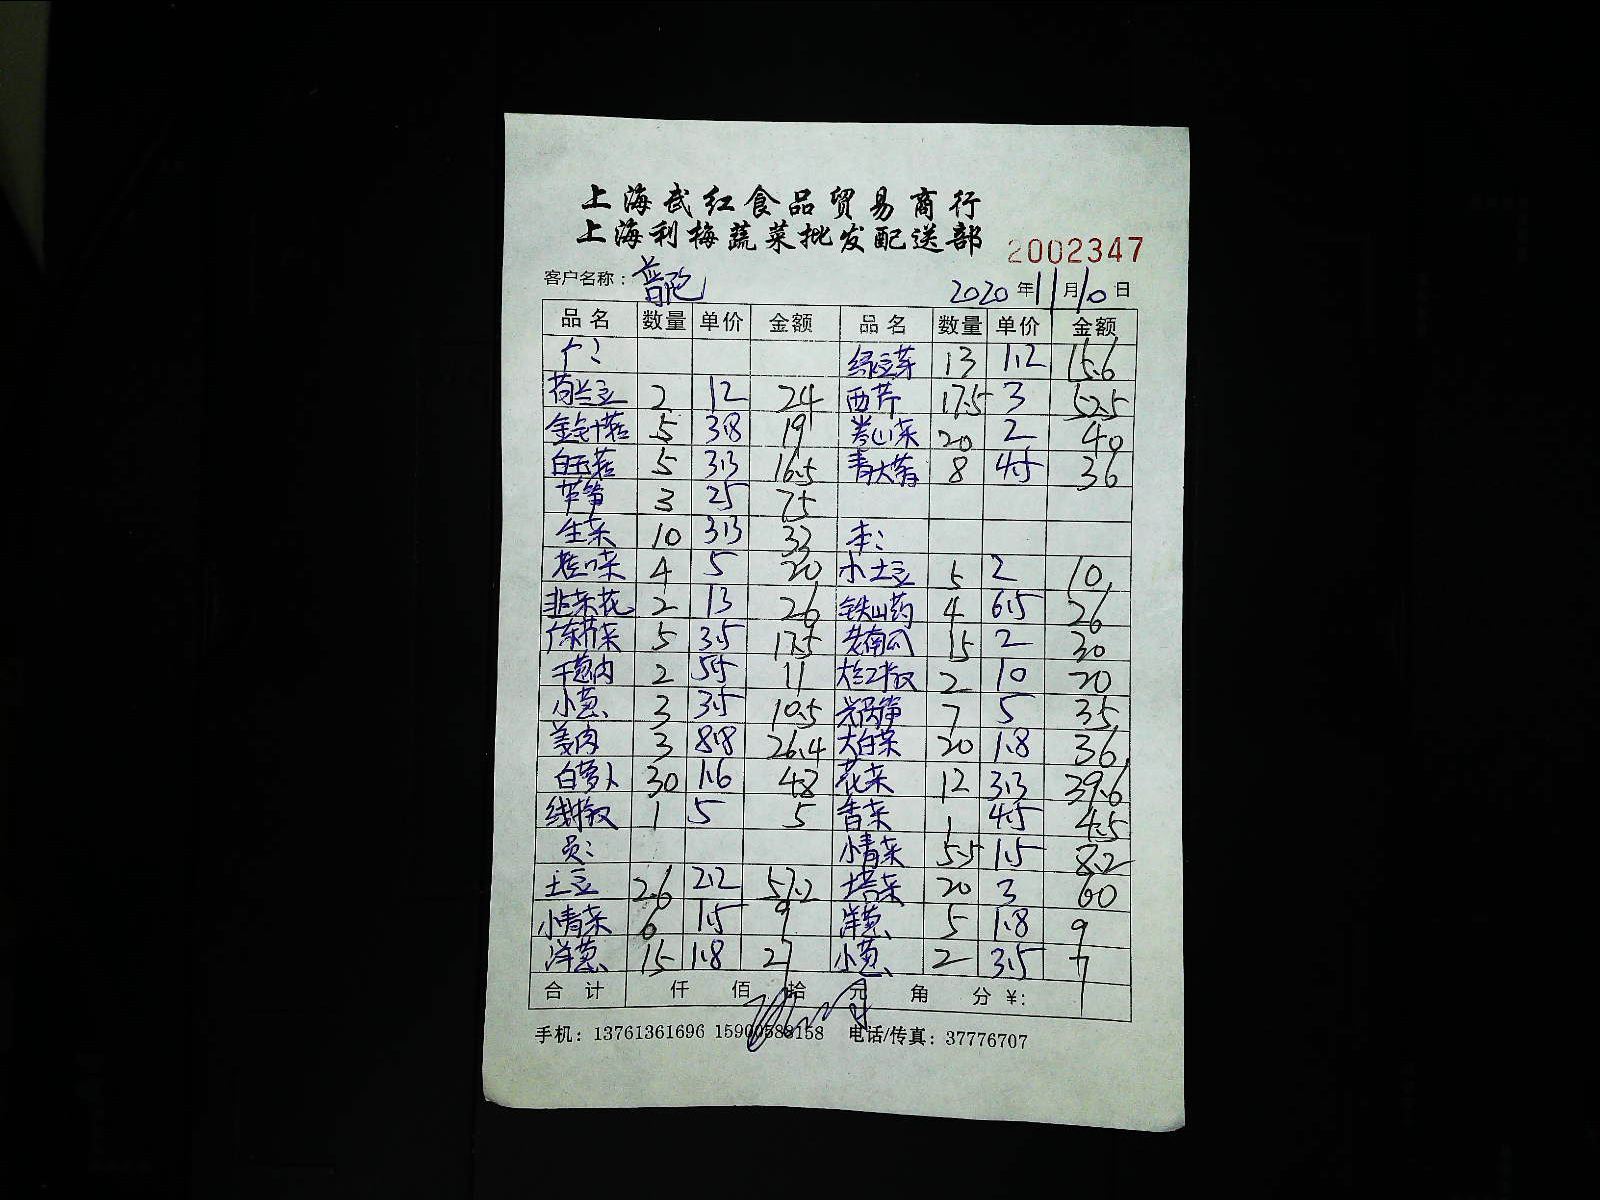 上海武红食品贸易商行
上海利梅蔬菜批发配送部
2002347
客户名称：普陀 2020年11月10日
品名 数量 单价 金额 品名 数量 单价 金额
绿豆芽 13 1.2 15.6
荷兰豆 2 12 24 西芹 17.5 3 52.5
金针菇 5 3.8 19 20 2 40
白玉菇 5 3.3 16.5 青大蒜 8 4.5 36
芦笋 3 25 75
生菜 10 3.3 33 本：
4 5 20 小土豆 5 2 10
韭菜花 2 13 26 铁山药 4 6.5 26
广东芥菜 5 3.5 17.5 老南瓜 15 2 30
干葱肉 2 5.5 11 大红椒 2 10 20
小葱 3 3.5 10.5 7 5 35
姜肉 3 8.8 26.4 大白菜 20 1.8 36
白萝卜 30 1.6 48 花菜 12 3.3 39.6
线椒 1 5 5 香菜 1 4.5 4.5
员： 小青菜 5.5 1.5 8.2
土豆 26 2.2 57.2 塔菜 20 3 60
小青菜 6 1.5 9 洋葱 5 1.8 9
洋葱 15 1.8 27 小葱 2 3.5 7
合计 仟 佰 拾 元 角 分 ¥:
手机：13761361696 15900588158 电话/传真：37776707